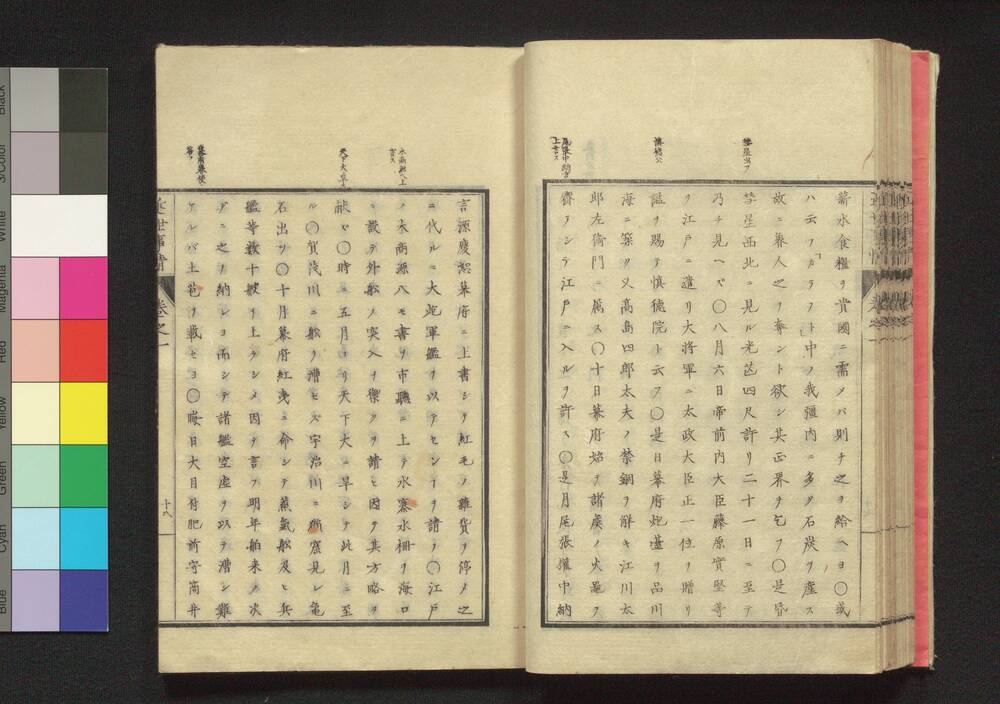 彗星出ツ
慎徳公
薪水食糧ヲ貴國ニ需メバ則チ之ヲ給ヘヨ〇或
ハ云フカラフト中ノ我疆内ニ多ク石炭ヲ産ス
故ニ魯人之ヲ奪ント欲シ其正界ヲ乞フ〇是昏
彗星西北ニ見ル光芒四尺許リ二十一日ニ至テ
乃チ見ヘズ〇八月六日帝前内大臣藤原實堅等
ヲ江戸ニ遣リ大將軍ニ太政大臣正一位ヲ贈リ
諡ヲ賜テ慎徳院ト云フ〇是日幕府炮臺ヲ品川
海ニ築ク又高島四郎太夫ノ禁錮ヲ解キ江川太
郎左衛門ニ属ス〇十日幕府焔ヲ諸虞ノ火黽ヲ
齎ヲシテ江戸ニ入ルヲ許ス〇是月尾張權中納
言源慶恕幕府ニ上書シリ紅毛ノ雜貨ヲ停メ之
ニ代ルニ大炮軍艦ヲ以テセンヿヲ請フ〇江戸
ノ木商源八モ書ヲ市聽ニ上テ水寨水柵ヲ海口
ニ設テ外船ノ突入ヲ禦クヲ請ヒ因テ其方略ヲ
献ゼ〇時ニ五月ヨリ天下大ニ旱シテ此月ニ至
ル〇賀茂川ニ船ヲ漕セズ宇治川ニ 窟見レ亀
石出ツ〇十月幕府紅洩ニ命シテ蒸氣船及ヒ兵
艦等数十艘ヲ上ラシメ因テ言フ明年舶来ノ次
デニ之ヲ納レヨ而シテ諸艦空虚ヲ以テ漕シ難
ケレバ土苞ヲ載セヨ〇晦日大目付肥前守筒井
近世事情 巻之一
十八